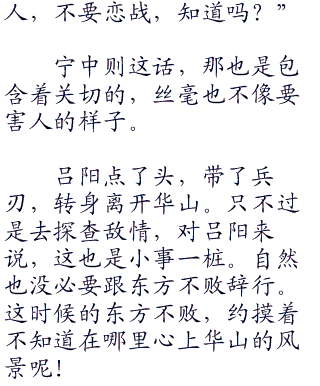 人，不要恋战，知道吗？”
宁中则这话，那也是包
含着关切的，丝毫也不像要
害人的样子。
吕阳点了头，带了兵
刃，转身离开华山。只不过
是去探查敌情，对吕阳来
说，这也是小事一桩。自然
也没必要跟东方不败辞行。
这时候的东方不败，约摸着
不知道在哪里心上华山的风
景呢！